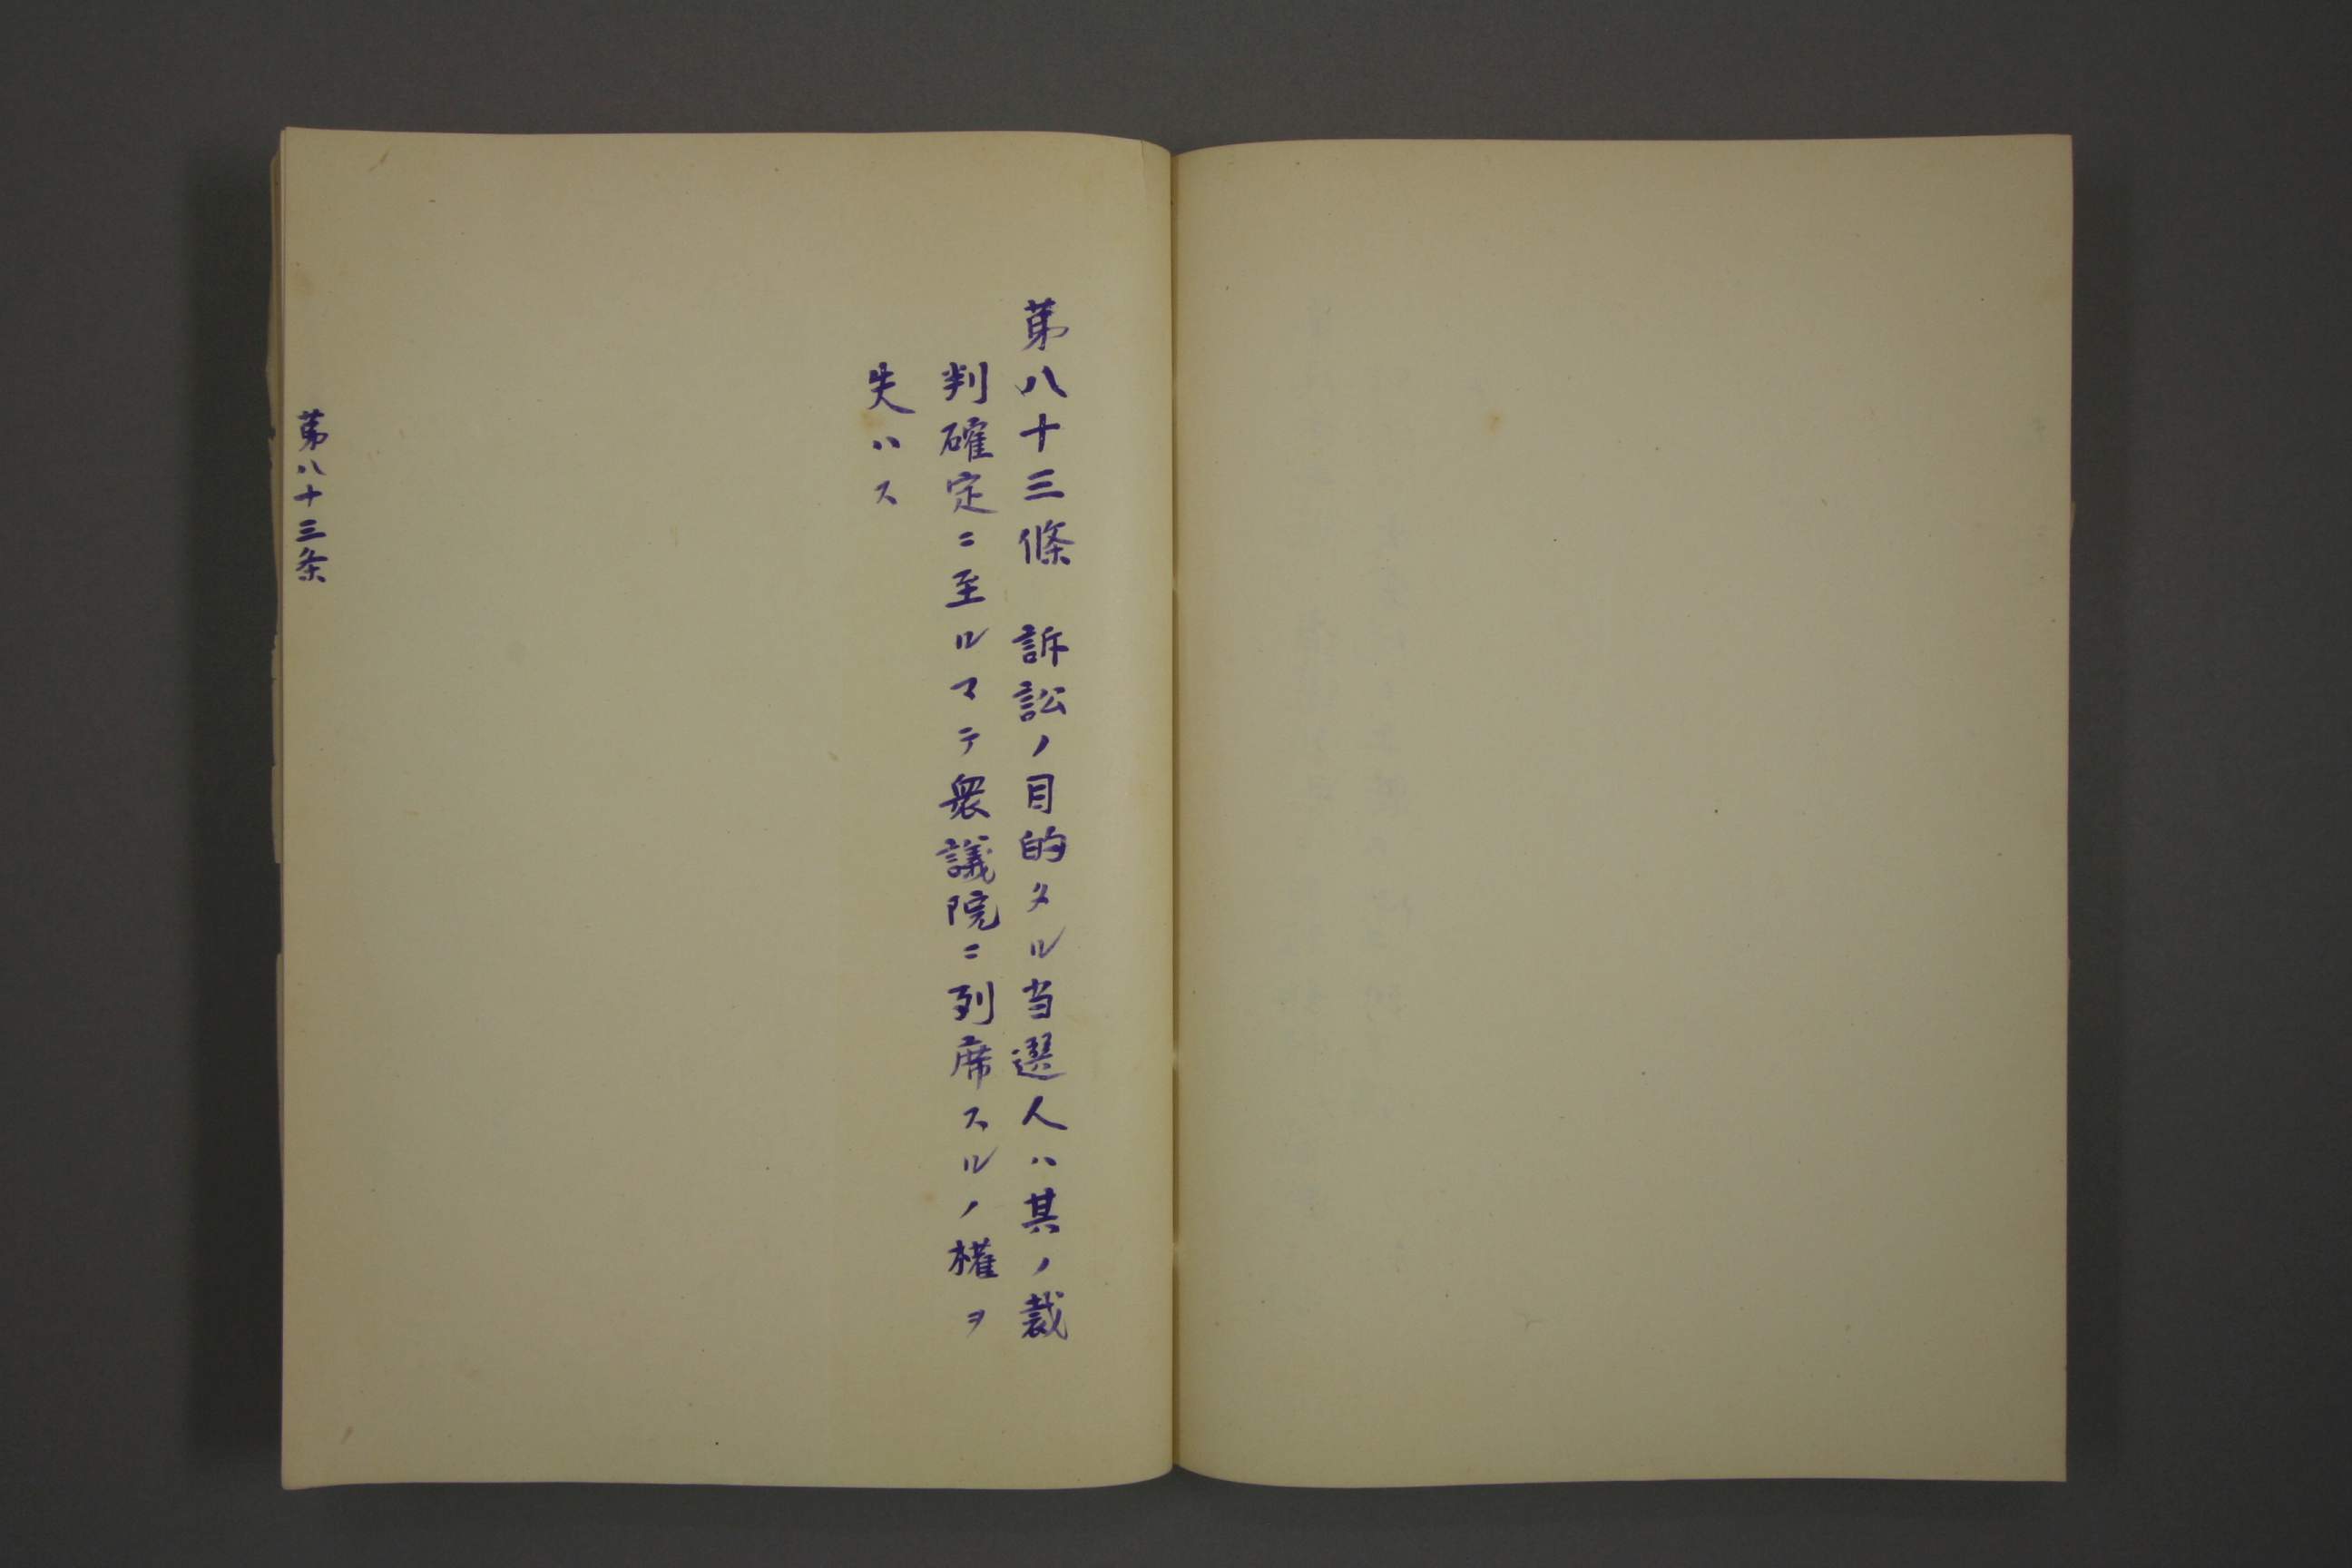 第八十三條　訴訟ノ目的タル当選人ハ其ノ裁
判確定ニ至ルマテ衆議院ニ列席スルノ權ヲ
失ハス
第八十三条